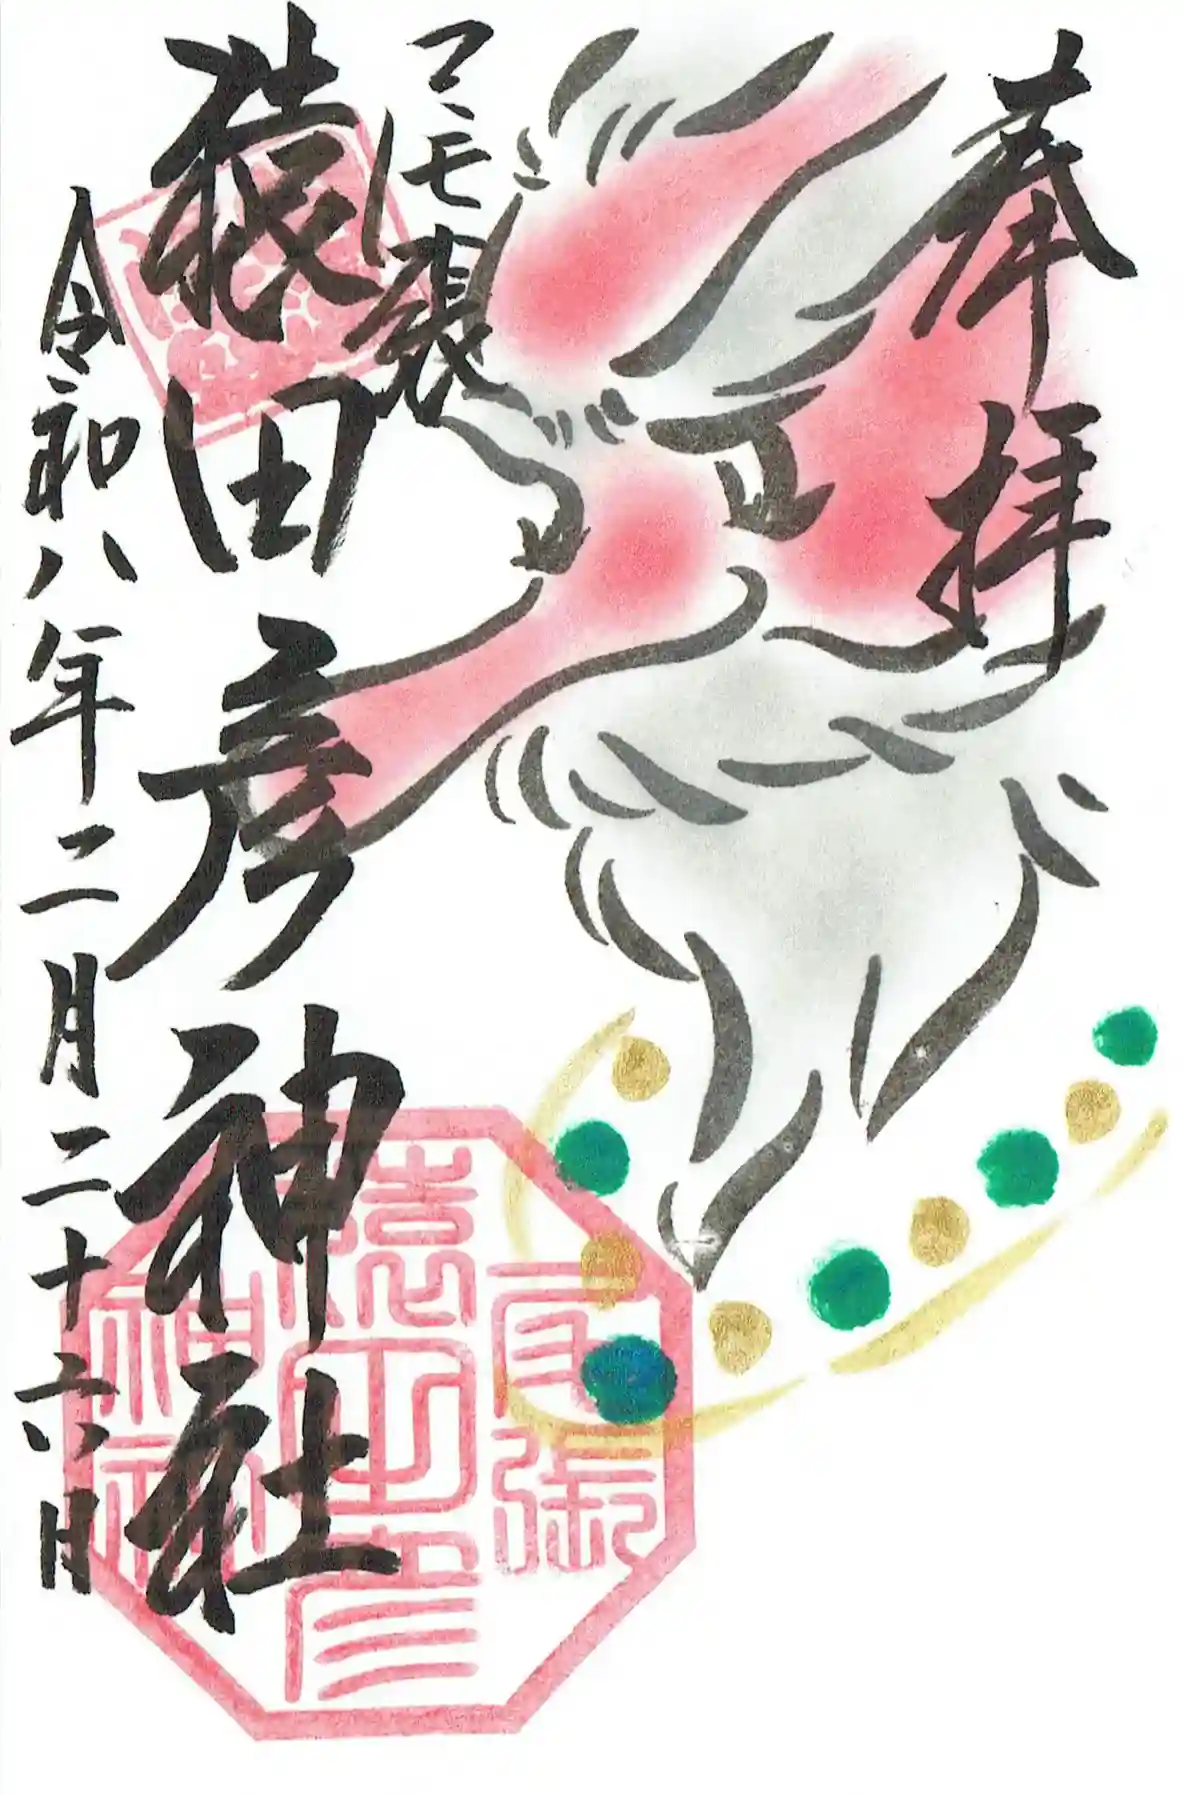 奉拝
尾張
猿田彦神社
令和八年二月二十六日
尾張
猿田彦
神社